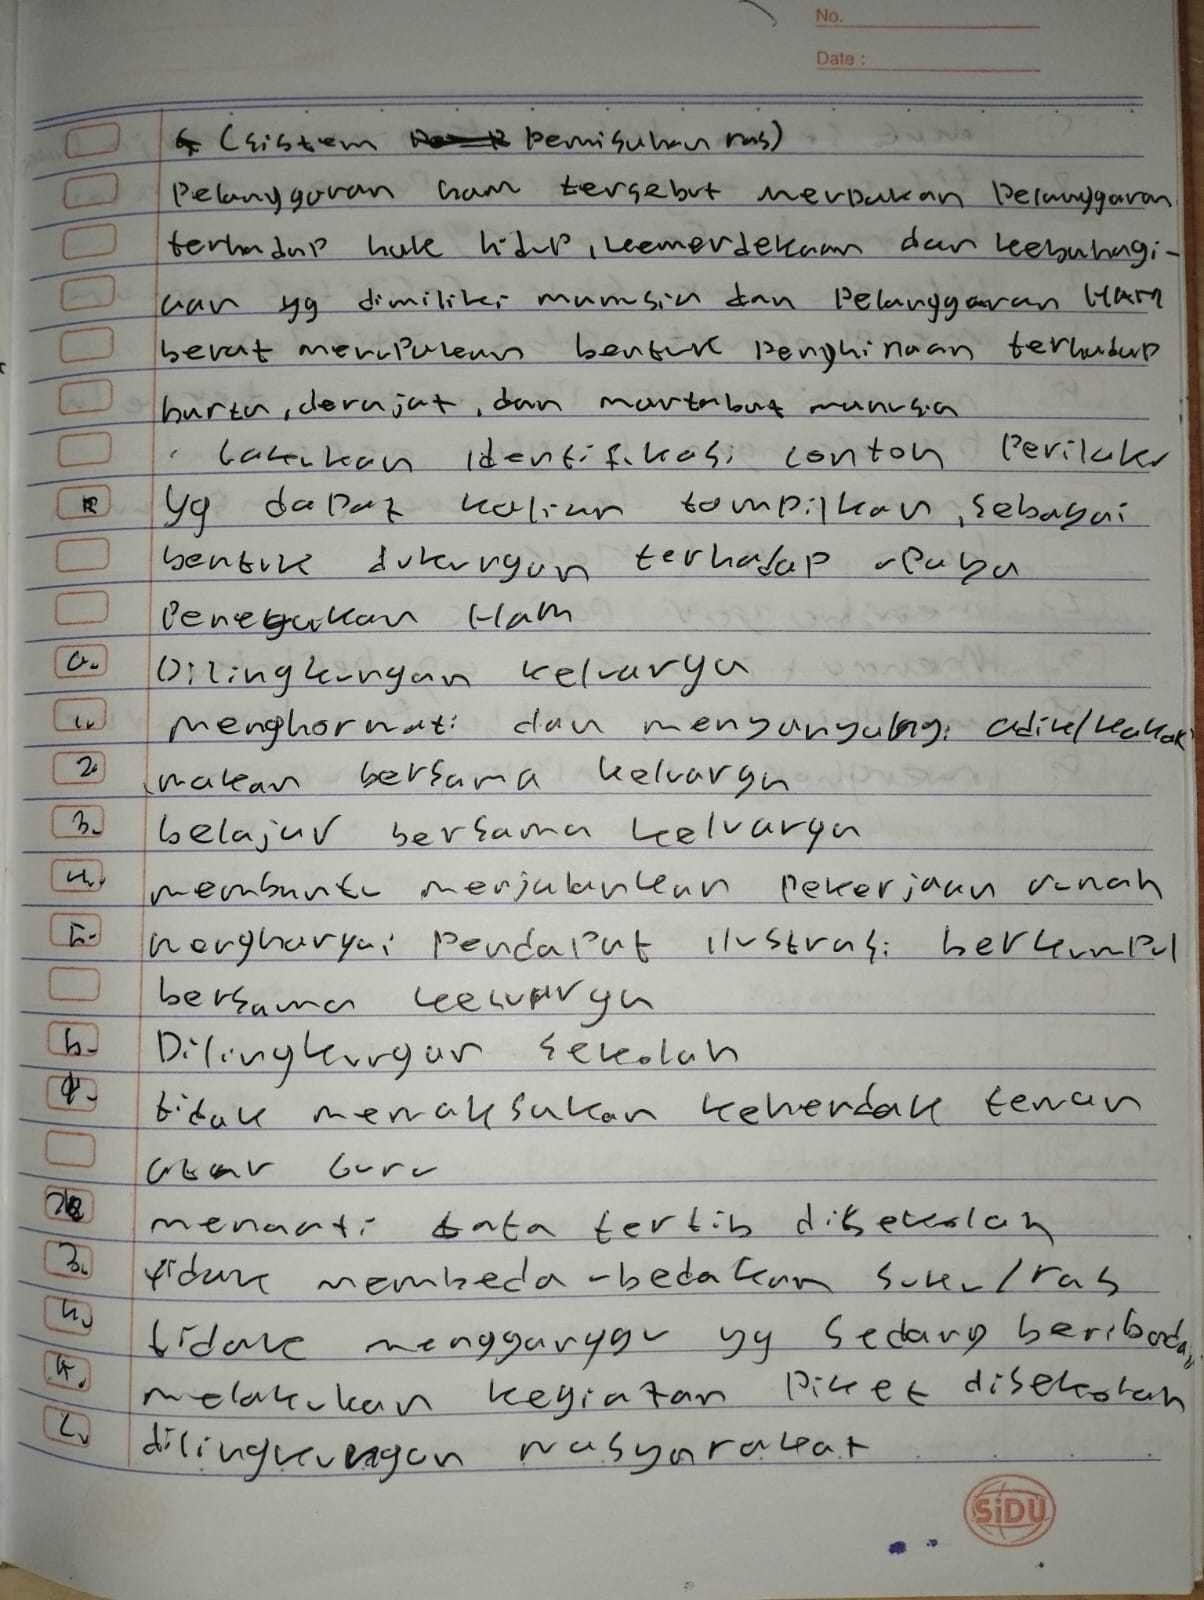 No.
Date :
(sistem pemisahan ras)
Pelanggaran ham tersebut merupakan Pelanggaran
terhadap hak hidup, kemerdekaan dan kebahagi-
aan yg dimiliki manusia dan Pelanggaran Ham
berat merupakan bentuk Penghinaan terhadap
harta, derajat, dan martabat manusia
Lakukan identifikasi contoh Perilaku
yg dapat kalian tampilkan, sebagai
bentuk dukungan terhadap upaya
Penegakan Ham
a. Dilingkungan keluarga
1. menghormati dan menyayangi adik/kakak
2. makan bersama keluarga
3. belajar bersama keluarga
4. membantu menjalankan Pekerjaan rumah
5. menghargai Pendapat ilustrasi berkumpul
bersama keluarga
b. Dilingkungan sekolah
1. tidak memaksakan kehendak teman
atau Guru
2. menaati tata tertib disekolah
3. tidak membeda-bedakan suku/ras
4. tidak mengganggu yg sedang beribadah
5. melakukan kegiatan Piket disekolah
c. dilingkungan masyarakat
SiDU